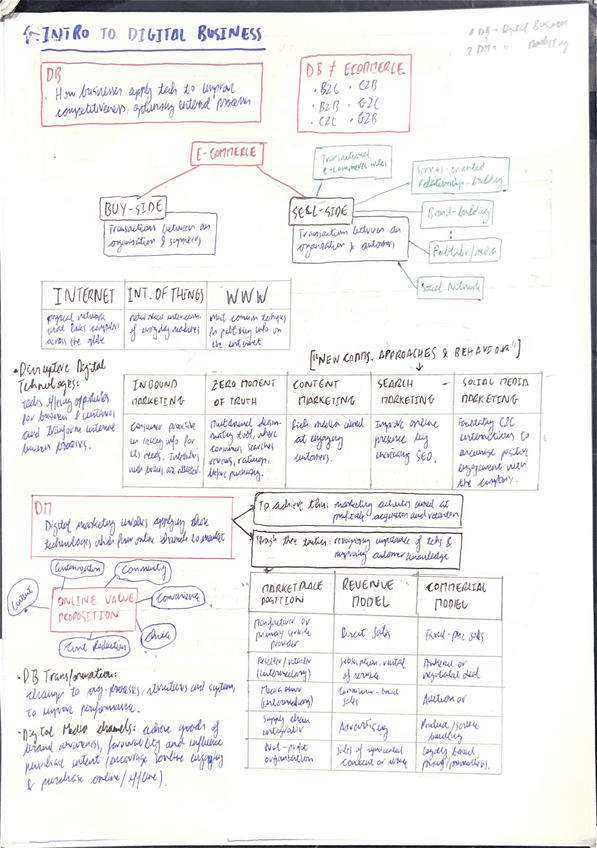 1. INTRO TO DIGITAL BUSINESS
1 DB → Digital Business
2 DM → " Marketing
DB
· How businesses apply tech to improve
competitiveness, optimising internal processes
DB ≠ ECOMMERCE
· B2C · C2B
· B2B · G2C
· C2C · G2B
E-COMMERCE
Transactional
e-commerce sites
Services-oriented
relationship-building
BUY-SIDE
SELL-SIDE
Brand-building
Transactions between an
organisation & suppliers
Transactions between an
organisation & customers
Publisher/media
Social Network
INTERNET
INT. OF THINGS
WWW
physical network
that links computers
across the globe
networked intercomm.
of everyday machines
most common technique
for publishing info on
the internet
["NEW COMMS. APPROACHES & BEHAVIOUR"]
· Disruptive Digital
Technologies:
techs offering opportunities
for business & customers
and transform internal
business processes.
INBOUND
MARKETING
ZERO MOMENT
OF TRUTH
CONTENT
MARKETING
SEARCH
MARKETING
SOCIAL MEDIA
MARKETING
Consumer proactive
in info for
its needs.
with brands are attracted.
Multichannel decision-
making tool, where
consumers searches
reviews, ratings,
before purchasing.
Rich media aimed
at engaging
customers.
Improve online
presence by
increasing SEO.
Facilitating C2C
interactions to
encourage positive
engagement with
the company.
DM
Digital marketing involves applying these
technologies which form online channels to market
To achieve this: marketing activities aimed at
profitable acquisition and retention
Through these tactics: recognising importance of techs &
improving customer knowledge
Customisation
Community
Content
ONLINE VALUE
PROPOSITION
Convenience
Cost Reduction
Choice
MARKETPLACE
POSITION
REVENUE
MODEL
COMMERCIAL
MODEL
Manufacturer or
primary service
provider
Direct sales
Fixed-price sales
Reseller/retailer
(intermediary)
Subscription, rental
of service
Brokered or
negotiated deal
Media owner
(intermediary)
Commission-based
sales
Auction or
Supply chain
integrator
Advertising
Product/service
bundling
Not-profit
organisation
Sales of syndicated
content or service
Loyalty based
pricing/promotions.
· DB Transformation:
changes to org. processes, structures and system,
to improve performance.
· Digital Media channels: achieve goals of
brand awareness, favourability and influence
purchase intent (encourage online engaging
& purchase online/offline).